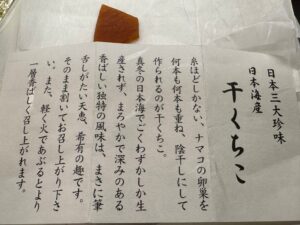 日本三大珍味
日本海産
干くちこ
糸ほどしかない、ナマコの卵巣を
何本も何本も重ね、陰干しにして
作られるのが干くちこ。
真冬の日本海でごくわずかしか生
産されず、まろやかで深みのある
香ばしい独特の風味は、まさに筆
舌しがたい天恵、希有の趣です。
そのまま割いてお召し上がり下さ
い。また、軽く火であぶるとより
一層香ばしく召し上がれます。